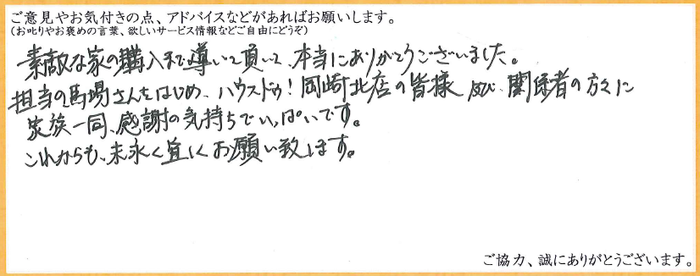 ご意見やお気付きの点、アドバイスなどがあればお願いします。
(お叱りやお褒めの言葉、欲しいサービス情報などご自由にどうぞ)
素敵な家の購入まで導いて頂いて、本当にありがとうございました。
担当の馬場さんをはじめ、ハウスドゥ!岡崎北店の皆様 及び 関係者の方々に
家族一同、感謝の気持ちでいっぱいです。
これからも、末永く宜しくお願い致します。
ご協力、誠にありがとうございます。